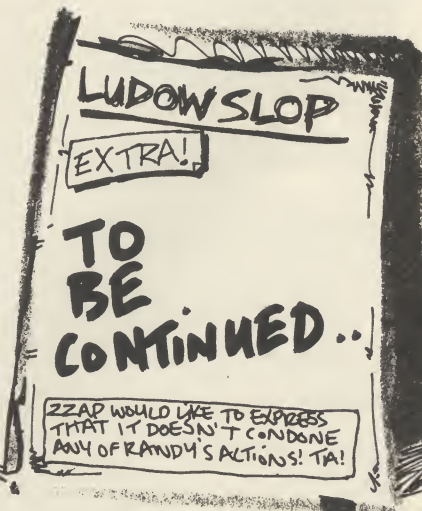 LUDOW SLOP
EXTRA!
TO
BE
CONTINUED..
ZZAP WOULD LIKE TO EXPRESS
THAT IT DOESN'T CONDONE
ANY OF RANDY'S ACTIONS! TA!